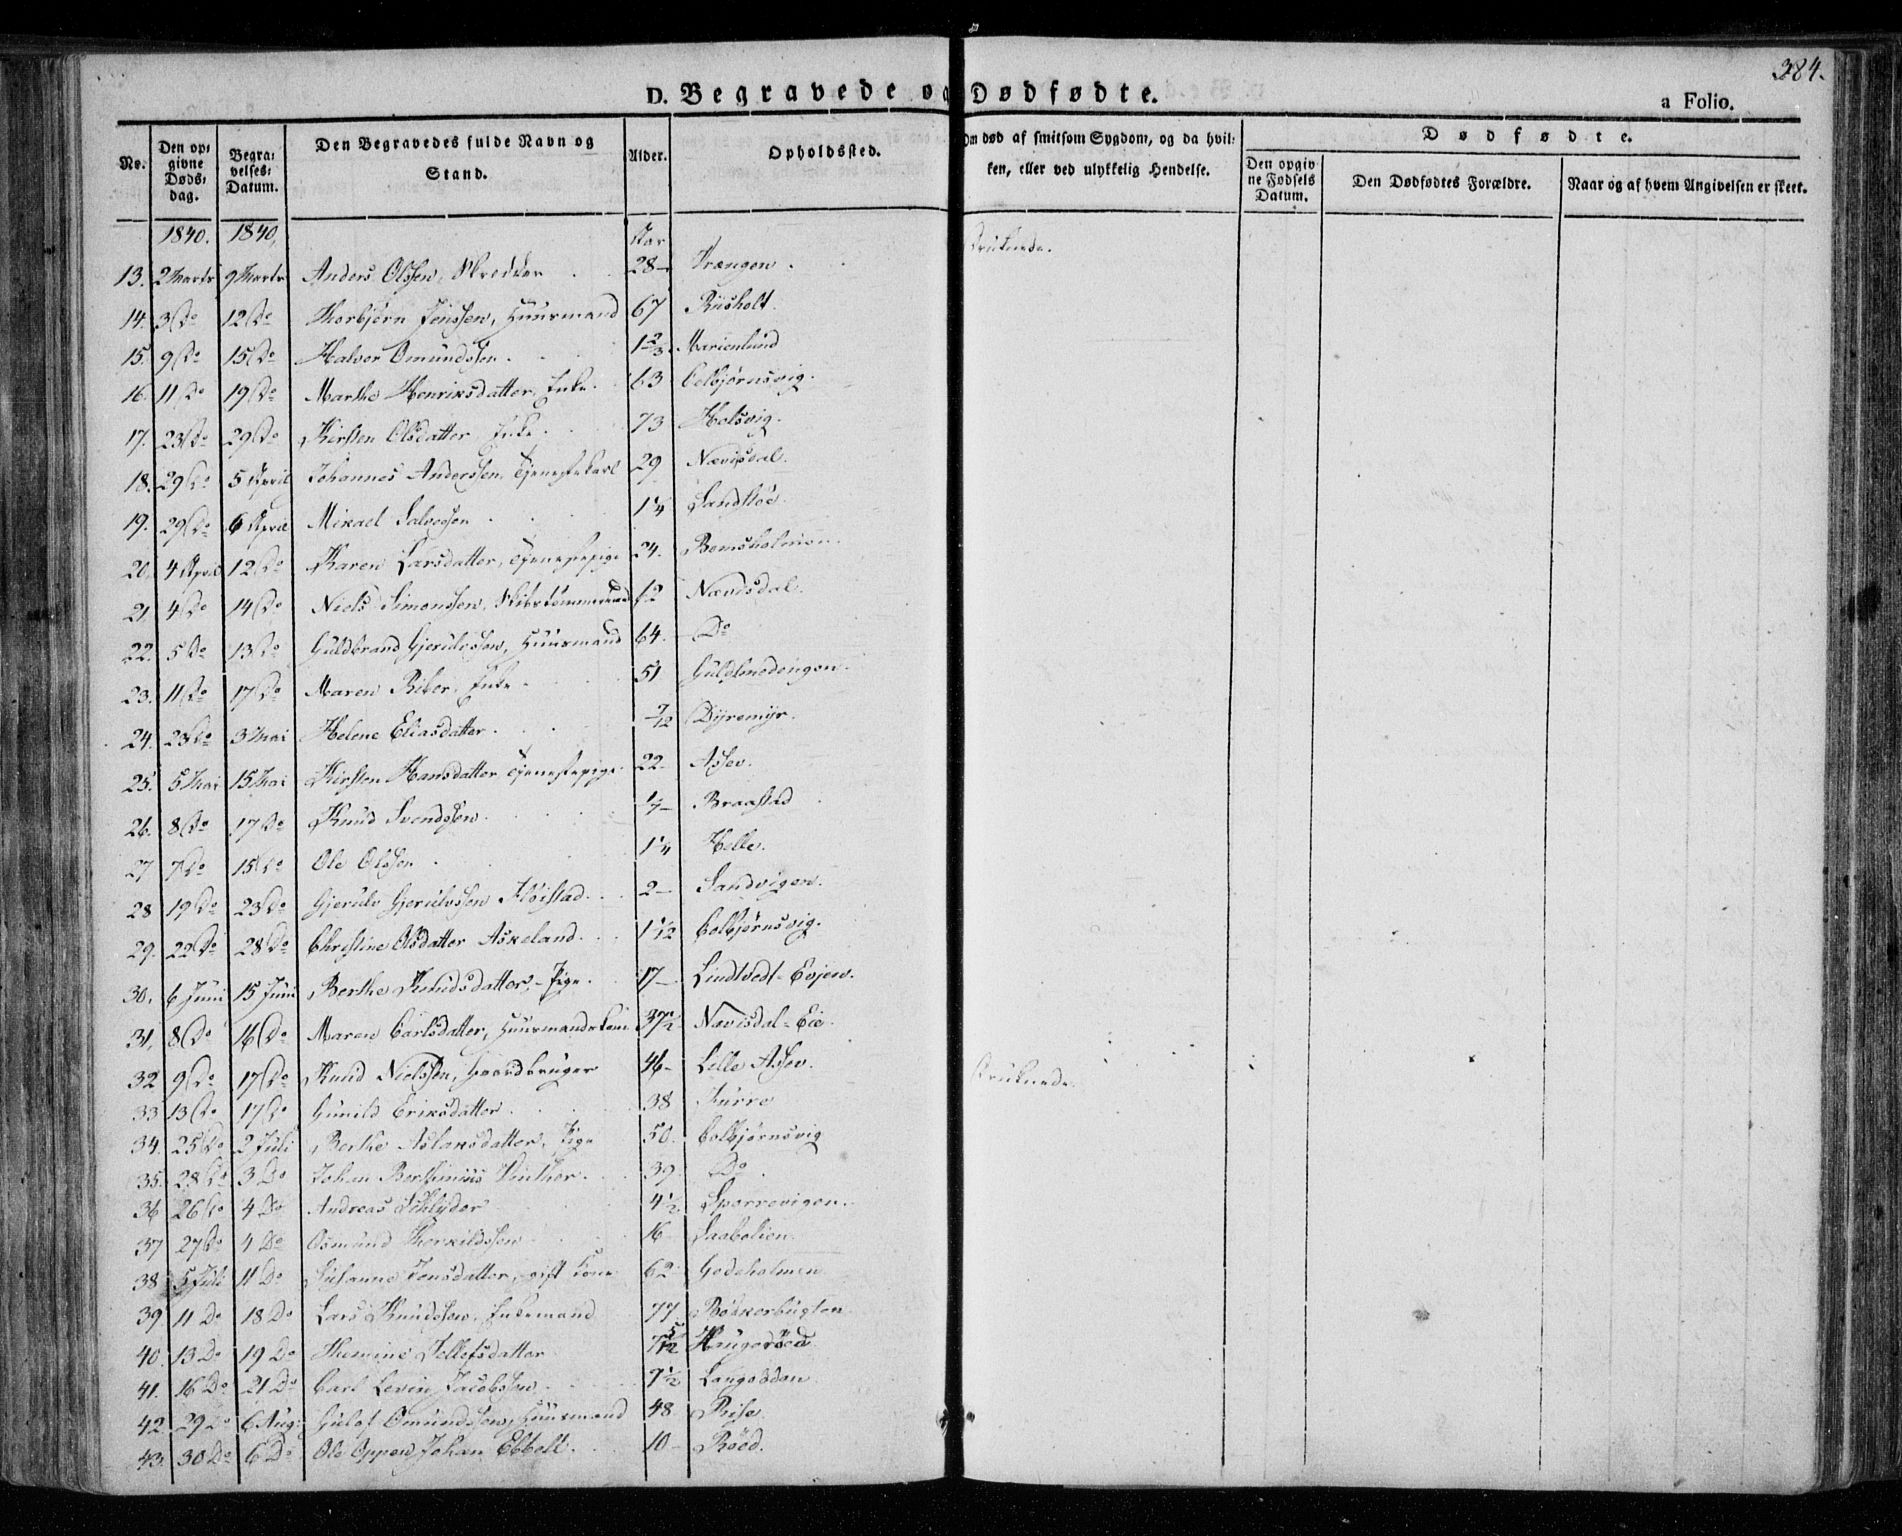 384.
D. Begravede og Dødfødte.
a Folio.
No.
Den op-
givne
Døds-
dag.
Begra-
velses-
Datum.
Den Begravedes fulde Navn og
Stand.
Alder.
Opholdssted.
Om død af smitsom Sygdom, og da hvil-
ken, eller ved ulykkelig Hendelse.
Dødfødte.
Den opgiv-
ne Fødsels
Datum.
Den Dødfødtes Forældre.
Naar og af hvem Angivelsen er skeet.
1840. 1840. Aar
13. 2 Marts 9 Marts Anders Olssen, Skredder 28 Trængen. Druknede.
14. 3 Do 12 Do Thorbjørn Jenssen, Huusmand 67 Riisholt.
15. 9 Do 15 Do Halvor Omundssen. Marienlund
16. 11 Do 19 Do Marthe Henriksdatter, Enke. 63 Colbjørnsvig.
17. 23 Do 29 Do Kirsten Olsdatter, Enke. 73 Holsvig.
18. 29 Do 5 April Johannes Anderssen, Tjenestekarl 29 Nævisdal.
19. 29 Do 6 April Mikael Salvessen 1 1/4 Sandstøe.
20. 4 April 12 Do Karen Larsdatter, Tjenestepige 24. Bomsholmen.
21. 4 Do 14 Do Niels Simonssen, Nævisdal.
22. 5 Do 13 Do Guldbrand Gjerulvssen, Huusmand 64. Do
23. 11 Do 17 Do Maren Riber, Enke. 51 Guldsmedengen.
24. 23 Do 3 Mai Helene Eliasdatter. 7/12 Dyremyr.
25. 5 Mai 15 Mai Kirsten Hansdatter Tjenestepige. 22 Assev.
26. 8 Do 17 Do Knud Svendssen. Braastad
27 7 Do 15 Do Ole Olssen. 1 1/4 Helle.
28 19 Do 23 Do Gjerulv Gjerulvssen Høistad. 2 Sandvigen.
29. 22 Do 28 Do Christine Olsdatter Askeland. 1 1/12 Colbjørnsvig.
30. 6 Juni 15 Juni Berthe Knudsdatter, Pige. 17 Lindtvedt-Evjen.
31. 8 Do 16 Do Maren Carlsdatter, Huusmandskone 37 1/2 Nævisdal-Eie.
32 9 Do 17 Do Knud Nielssen, Gaardbruger 46 Lille Assev. Druknede.
33 13 Do 17 Do Gunild Eriksdatter. 38 Kurre
34. 25 Do 2 Juli Berthe Aslaksdatter, Pige 50. Colbjørnsvig
35. 28 Do 3 Do Johan Berthinius Winther. 39 Do
36 26 Do 4 Do Andreas Schlyder 4 1/2 Sporrevigen.
37 27 Do 4 Do Osmund Therkildssen 16 Saabolien.
38 5 Juli 11 Do Susanne Jensdatter, gift Kone 62 Godeholmen
39 11 Do 18 Do Lars Knudssen, Enkemand 77 Bödkerbugten
40. 13 Do 19 Do Themine Tellefsdatter 7 5/12 Haugeröed
41. 16 Do 21 Do Carl Levin Jacobssen. Langodden
42. 29 Do 6 Aug: Omundssen, Huusmand 48 Rise
43. 30 Do 6 Do Ole Oppen Johan Ebbell. 10 Röed.